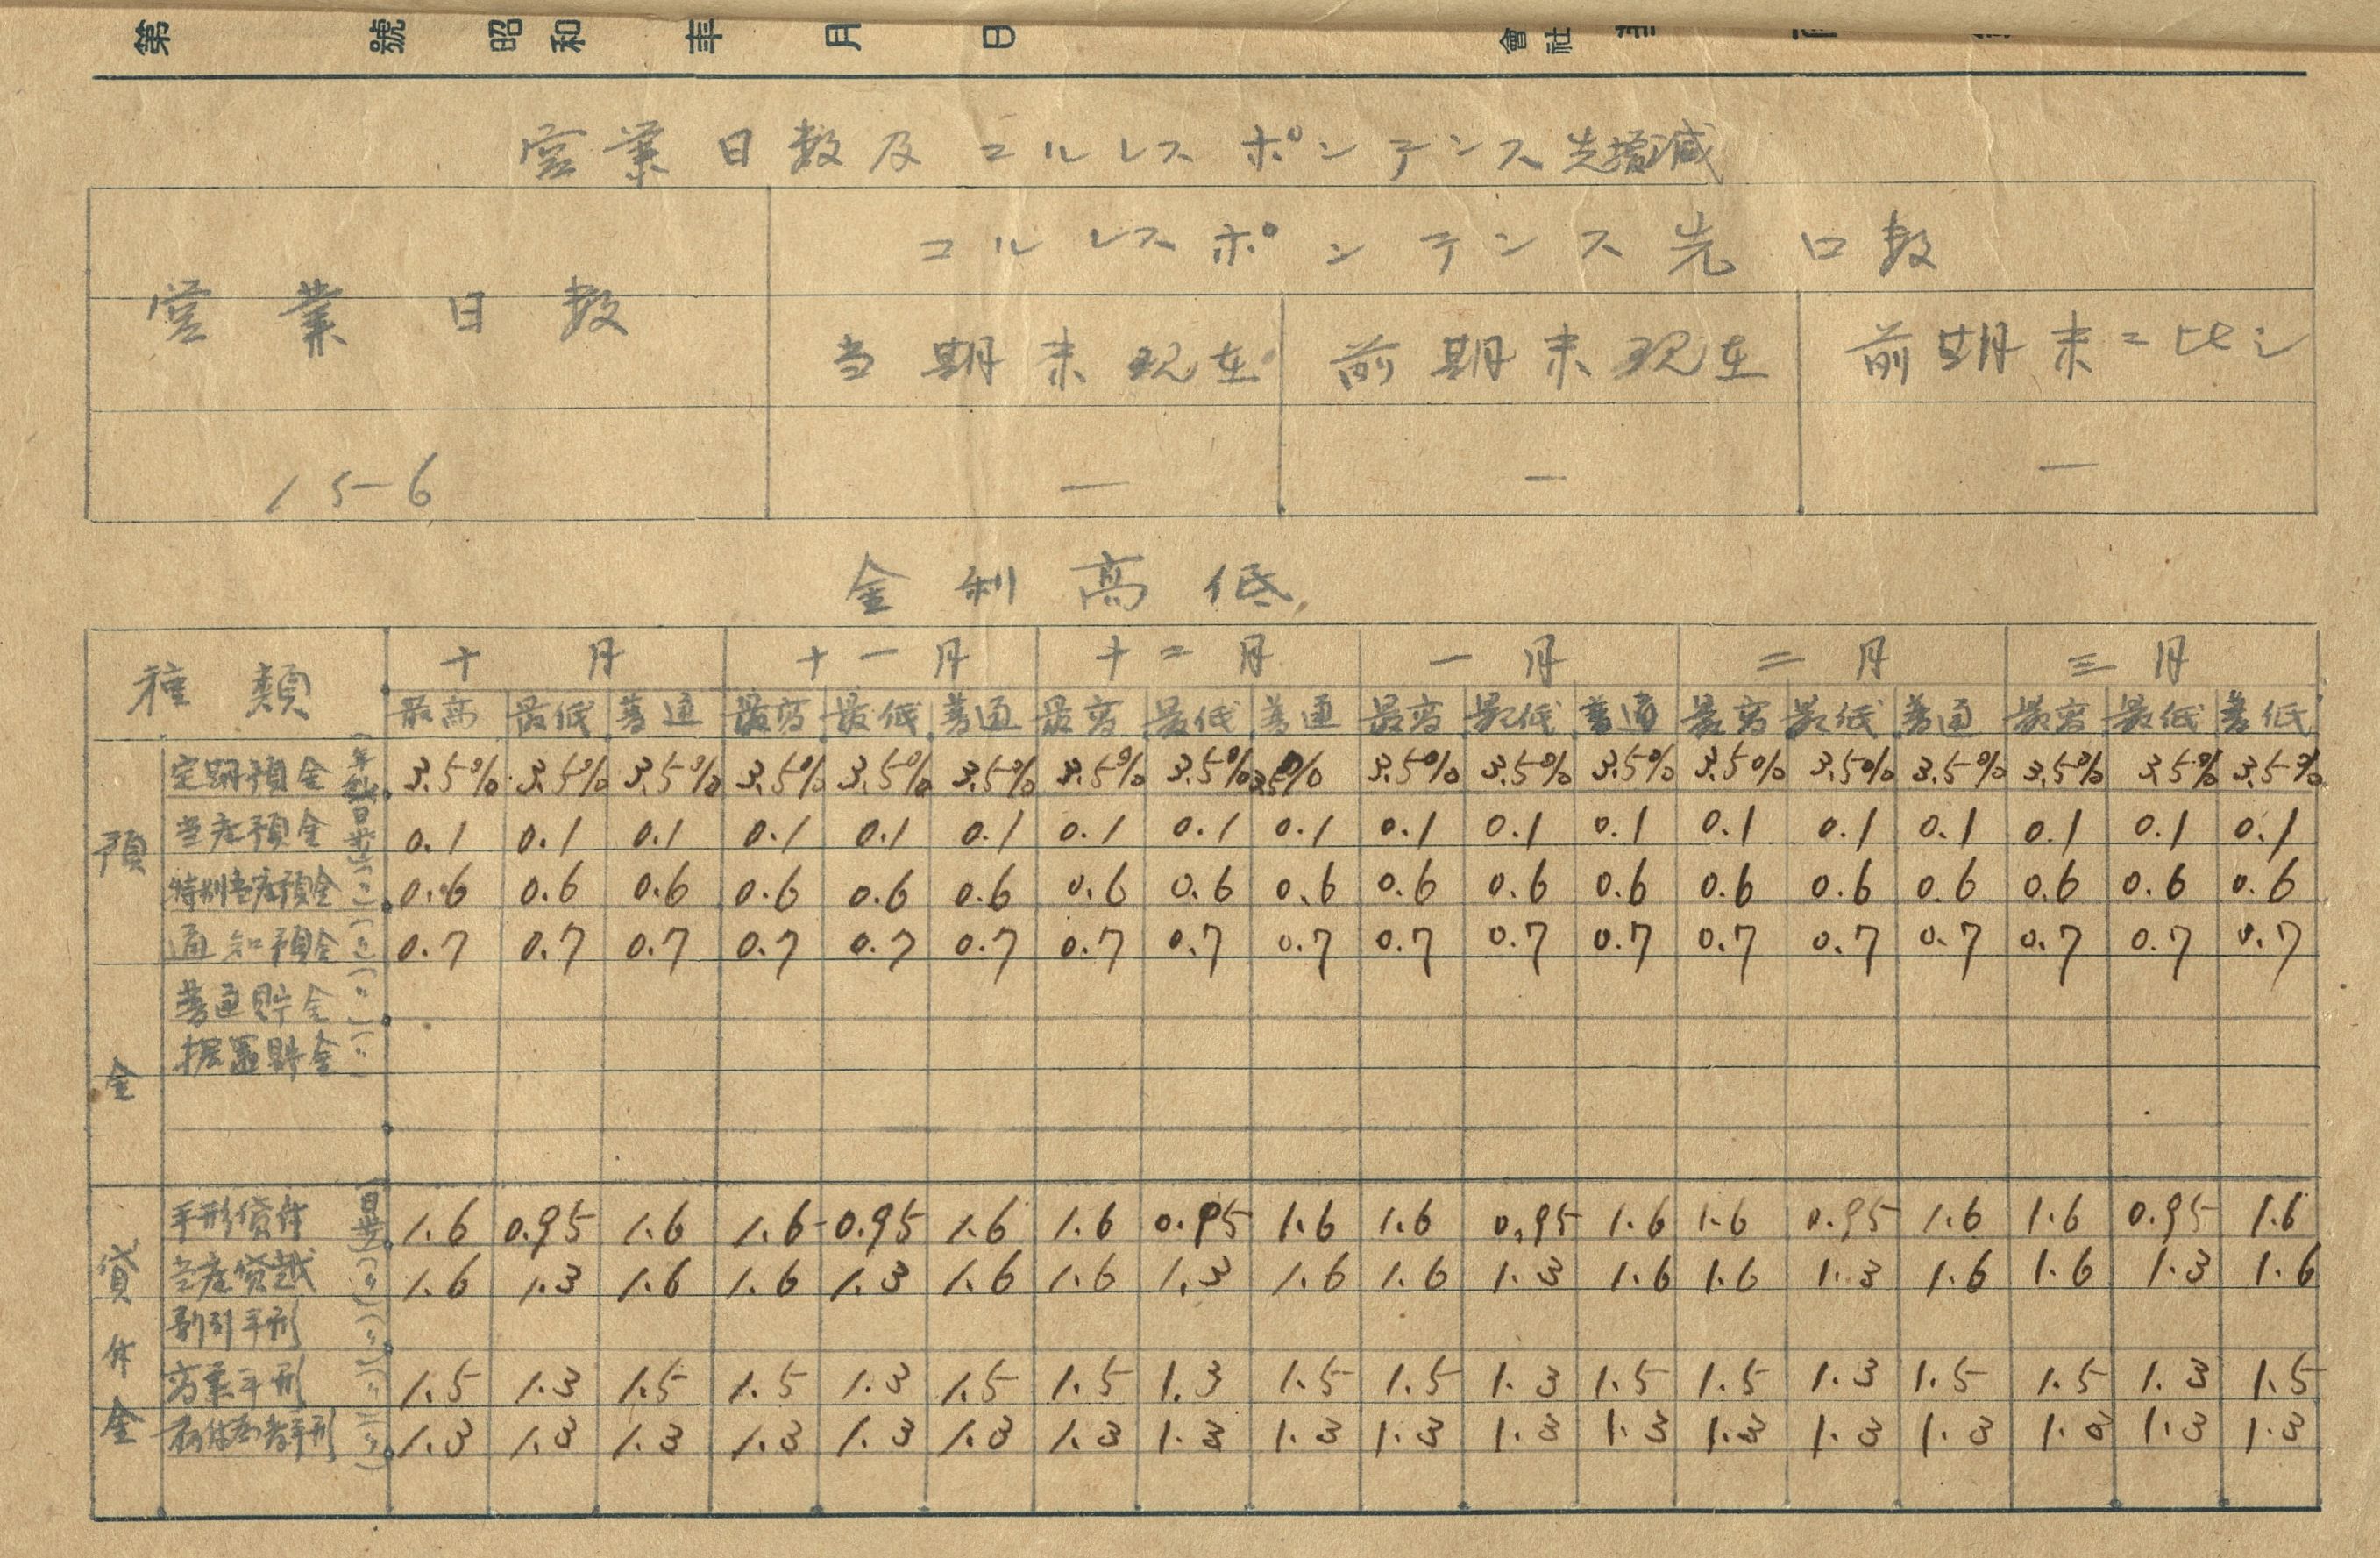 第 號 昭和 年 月 日 會社
営業日数及コルレスポンデンス先増減
営業日数 コルレスポンデンス先口数
当期末現在 前期末現在 前期末ニ比シ
156 — — —
金利高低
種類 十月 十一月 十二月 一月 二月 三月
最高 最低 普通 最高 最低 普通 最高 最低 普通 最高 最低 普通 最高 最低 普通 最高 最低 普低
預金
定期預金 (年利) 3.5% 3.5% 3.5% 3.5% 3.5% 3.5% 3.5% 3.5% 3.5% 3.5% 3.5% 3.5% 3.5% 3.5% 3.5% 3.5% 3.5% 3.5%
当座預金 (日歩) 0.1 0.1 0.1 0.1 0.1 0.1 0.1 0.1 0.1 0.1 0.1 0.1 0.1 0.1 0.1 0.1 0.1 0.1
特別当座預金 (〃) 0.6 0.6 0.6 0.6 0.6 0.6 0.6 0.6 0.6 0.6 0.6 0.6 0.6 0.6 0.6 0.6 0.6 0.6
通知預金 (〃) 0.7 0.7 0.7 0.7 0.7 0.7 0.7 0.7 0.7 0.7 0.7 0.7 0.7 0.7 0.7 0.7 0.7 0.7
普通貯金 (〃)
据置貯金 (〃)
貸付金
手形貸付 (日歩) 1.6 0.95 1.6 1.6 0.95 1.6 1.6 0.95 1.6 1.6 0.95 1.6 1.6 0.95 1.6 1.6 0.95 1.6
当座貸越 (〃) 1.6 1.3 1.6 1.6 1.3 1.6 1.6 1.3 1.6 1.6 1.3 1.6 1.6 1.3 1.6 1.6 1.3 1.6
割引手形 (〃)
商業手形 (〃) 1.5 1.3 1.5 1.5 1.3 1.5 1.5 1.3 1.5 1.5 1.3 1.5 1.5 1.3 1.5 1.5 1.3 1.5
荷付為替手形 (〃) 1.3 1.3 1.3 1.3 1.3 1.3 1.3 1.3 1.3 1.3 1.3 1.3 1.3 1.3 1.3 1.3 1.3 1.3